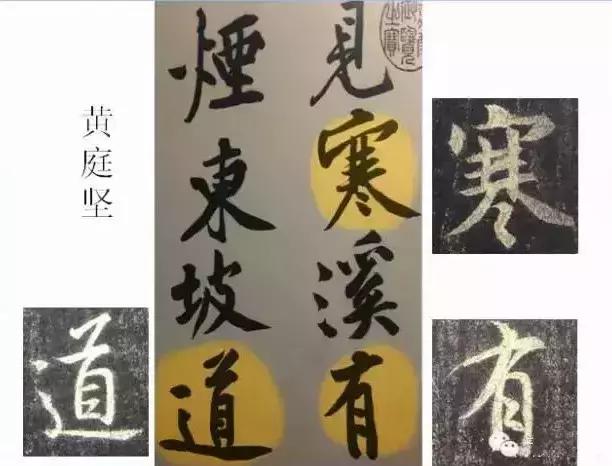 寒
有
見寒溪有
煙東坡道
黄庭坚
道